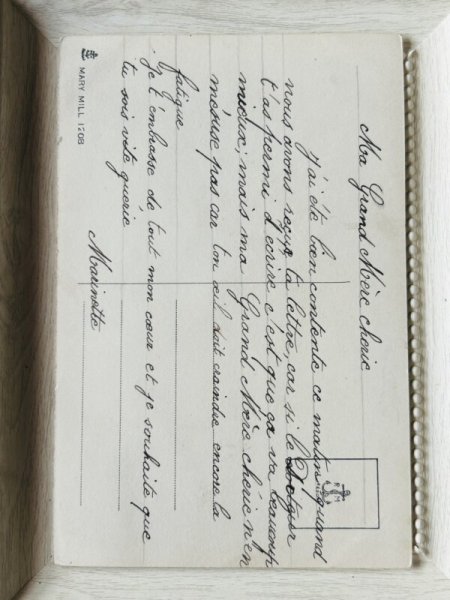 Ma Grand Mère cherie
J'ai été bien contente ce matin quand
nous avons reçue ta lettre, car si le Docteur
t'as permi d'ecrire c'est que ça va beaucoup
mieux; mais ma Grand Mère chérie n'en
mésuse pas car ton œil doit craindre encore la
fatigue
Je t'embrasse de tout mon cœur et je souhaite que
tu sois vite guerie
Marinette
MARY MILL 1208
R M